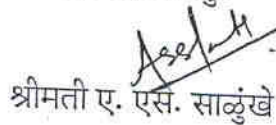 श्रीमती ए. एस. साळुंखे